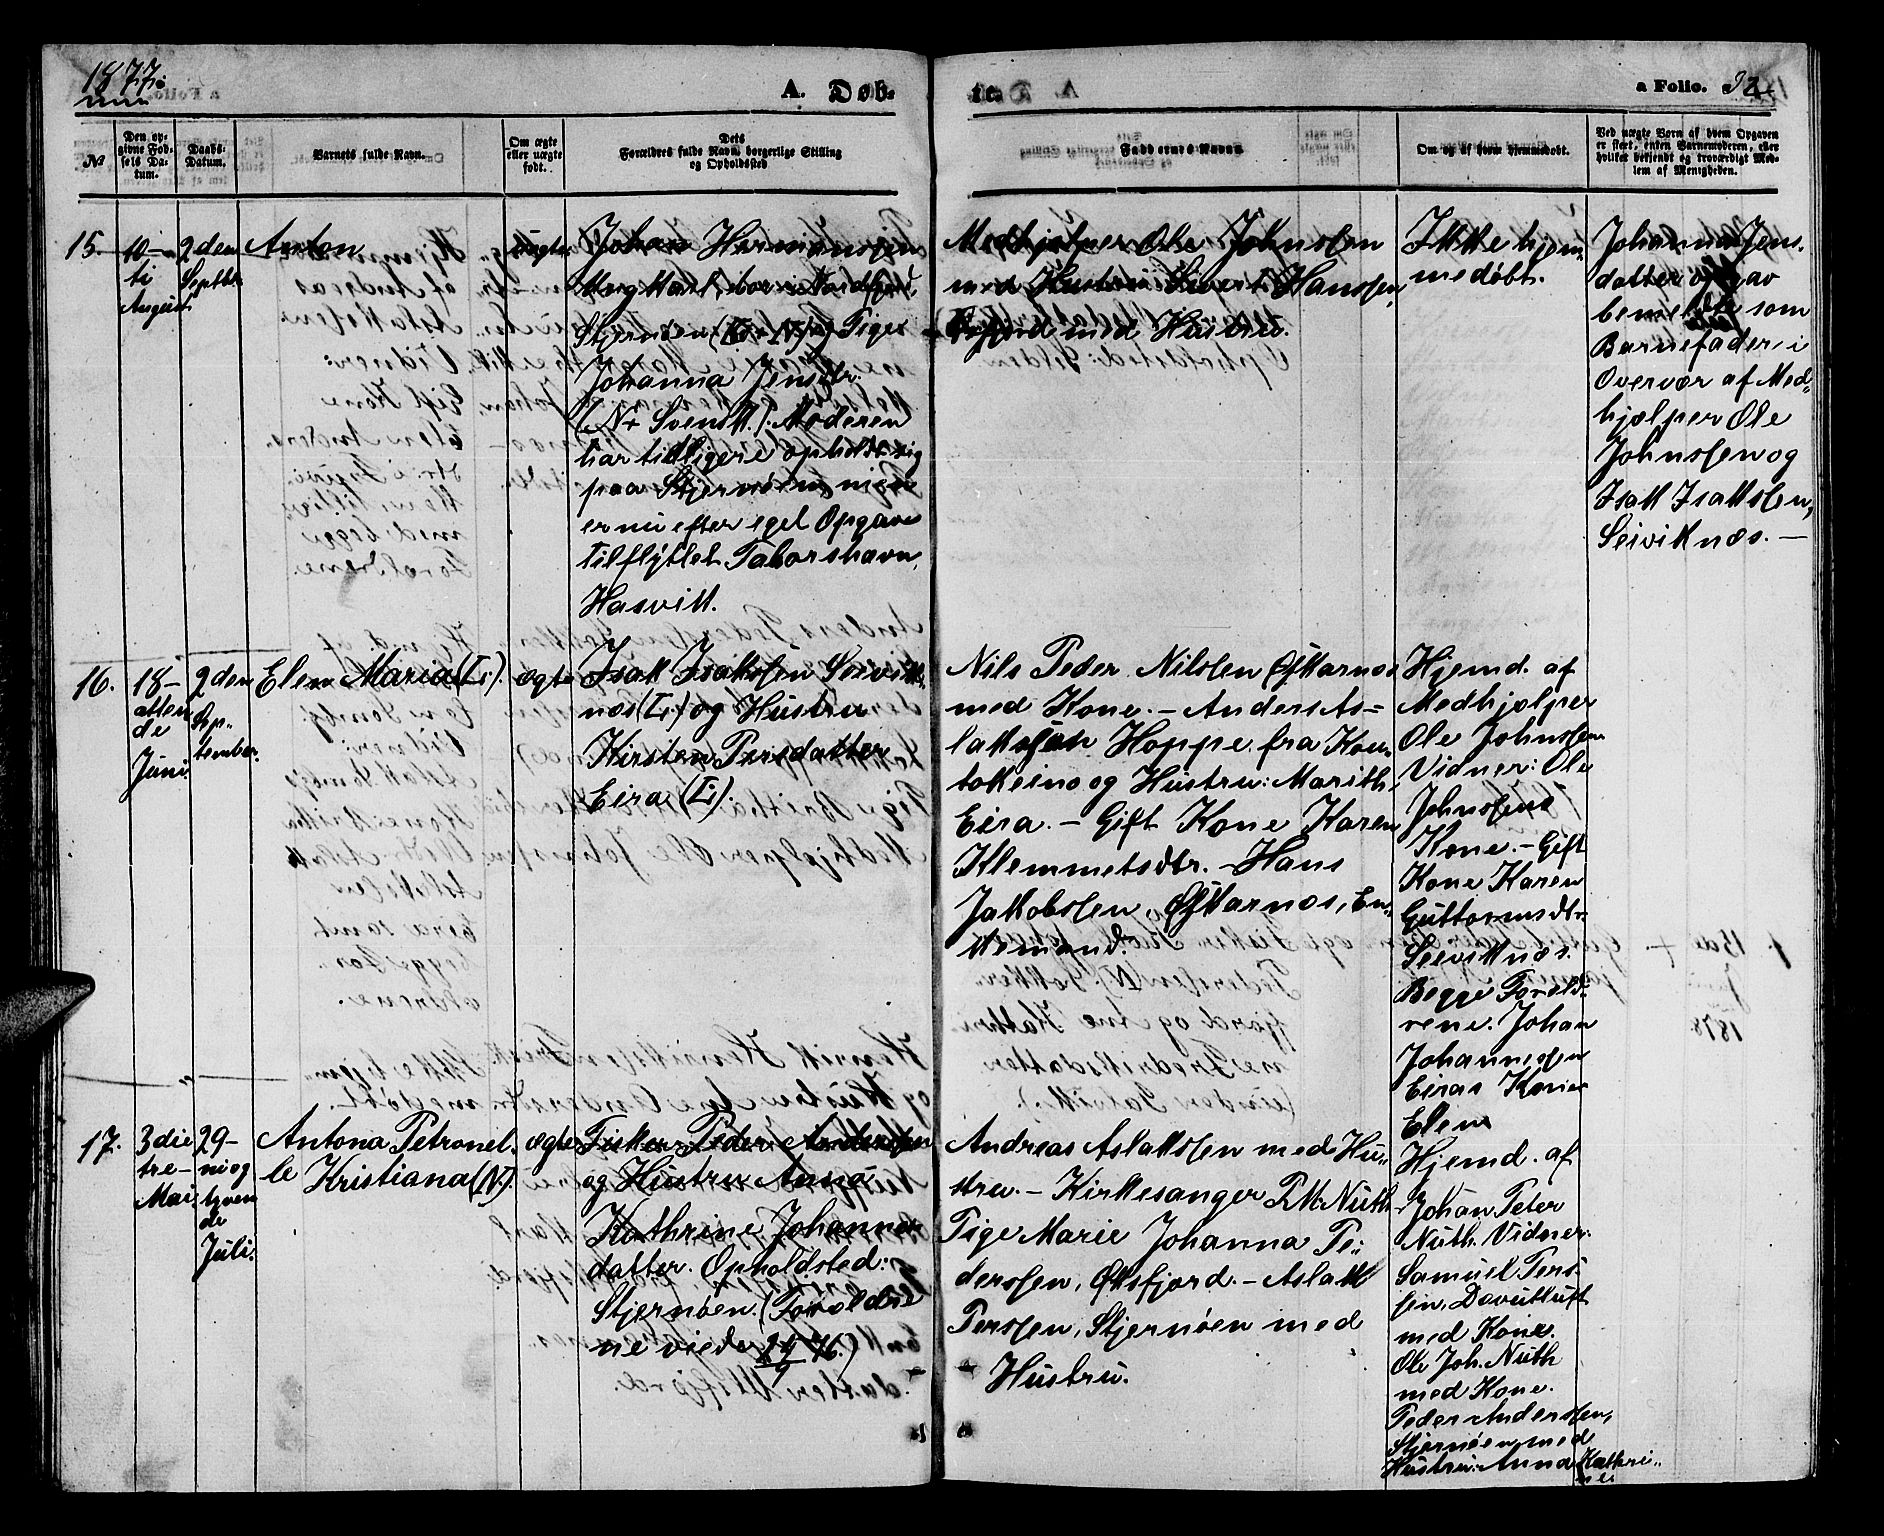 1877.
A. Døb-
te.
a Folio. 32.
№
Den op-
givne Fød-
sels Da-
tum.
Daabs-
Datum.
Barnets fulde Navn.
Om ægte
eller uægte
født.
Dets
Forældres fulde Navn, borgerlige Stilling
og Opholdssted
Faddernes Navn
Om og af hvem hjemmedøbt.
Ved uægte Børn af hvem Opgaven
er skeet, enten Barnemoderen, eller
hvilket bekjendt og troværdigt Med-
lem af Menigheden.
15.
10-
ti
August
2den
Septbr.
Anton
uægte
Johan Hermansen
Ungkarl, bor i Nordfjord,
Stjernøen og Pige
Johanna Jensdtr.
(N+ Svensk). Moderen
har tidligere opholdt sig
paa Stjernøen, men
er nu efter eget Opgave
tilflyttet Taborshavn,
Hasvik.
Medhjelper Ole Johnsen
med Hustru Sivert Hanssen,
med Hustru.
Ikke hjem-
medøbt.
Johanna Jens-
datter opgav
bemeldte som
Barnefader i
Overvær af Med-
hjælper Ole
Johnsen og
Isak Isaksen,
Seiviknæs. —
16.
18-
atten
de
Juni
2den
Sep-
tember.
Elen Maria (L.)
ægte
Isak Isaksen Seivik-
næs (L.) og Hustru
Kirsten Persdatter
Eira (L.)
Nils Peder Nilsen Øskarnæs
med Kone. — Anders As-
laksen Hoppe fra Kou-
tokeino og Hustru: Marith
Eira. — Gift Kone Karen
Klemmetsdtr. — Hans
Jakobsen, Øskarnæs, En-
kemand.
Hjemd. af
Medhjælper
Ole Johnsen
Vidner: Ole
Johnsens
Kone. — Gift
Kone Karen
Guttormsdtr.
Seiviknæs.
Begge Foreld-
rene. Johan
Johannesen
Eiras Kone
Elen
17.
3die
tre-
Mai.
29-
ni og
tyven
de
Juli.
Antona Petronel-
le Kristiana (N.)
ægte
Fisker Peder Andersen
og Hustru Anna
Kathrine Johannes
datter. Opholdsted:
Stjernøen. (Foreldre
ne viede 76.)
Andreas Aslaksen med Hu-
stru. — Kirkesanger P. M. Nuth
Pige Marie Johanna Pe-
dersen, Øksfjord. — Aslak
Persen, Stjernøen med
Hustru.
Hjemd. af
Johan Peter
Nuth. Vidner:
Samuel Pers-
sen, Davutluft
med Kone.
Ole Joh. Nuth
med Kone.
Peder Andersen,
Stjernøen med
Hustru: Anna Kathri-
ne